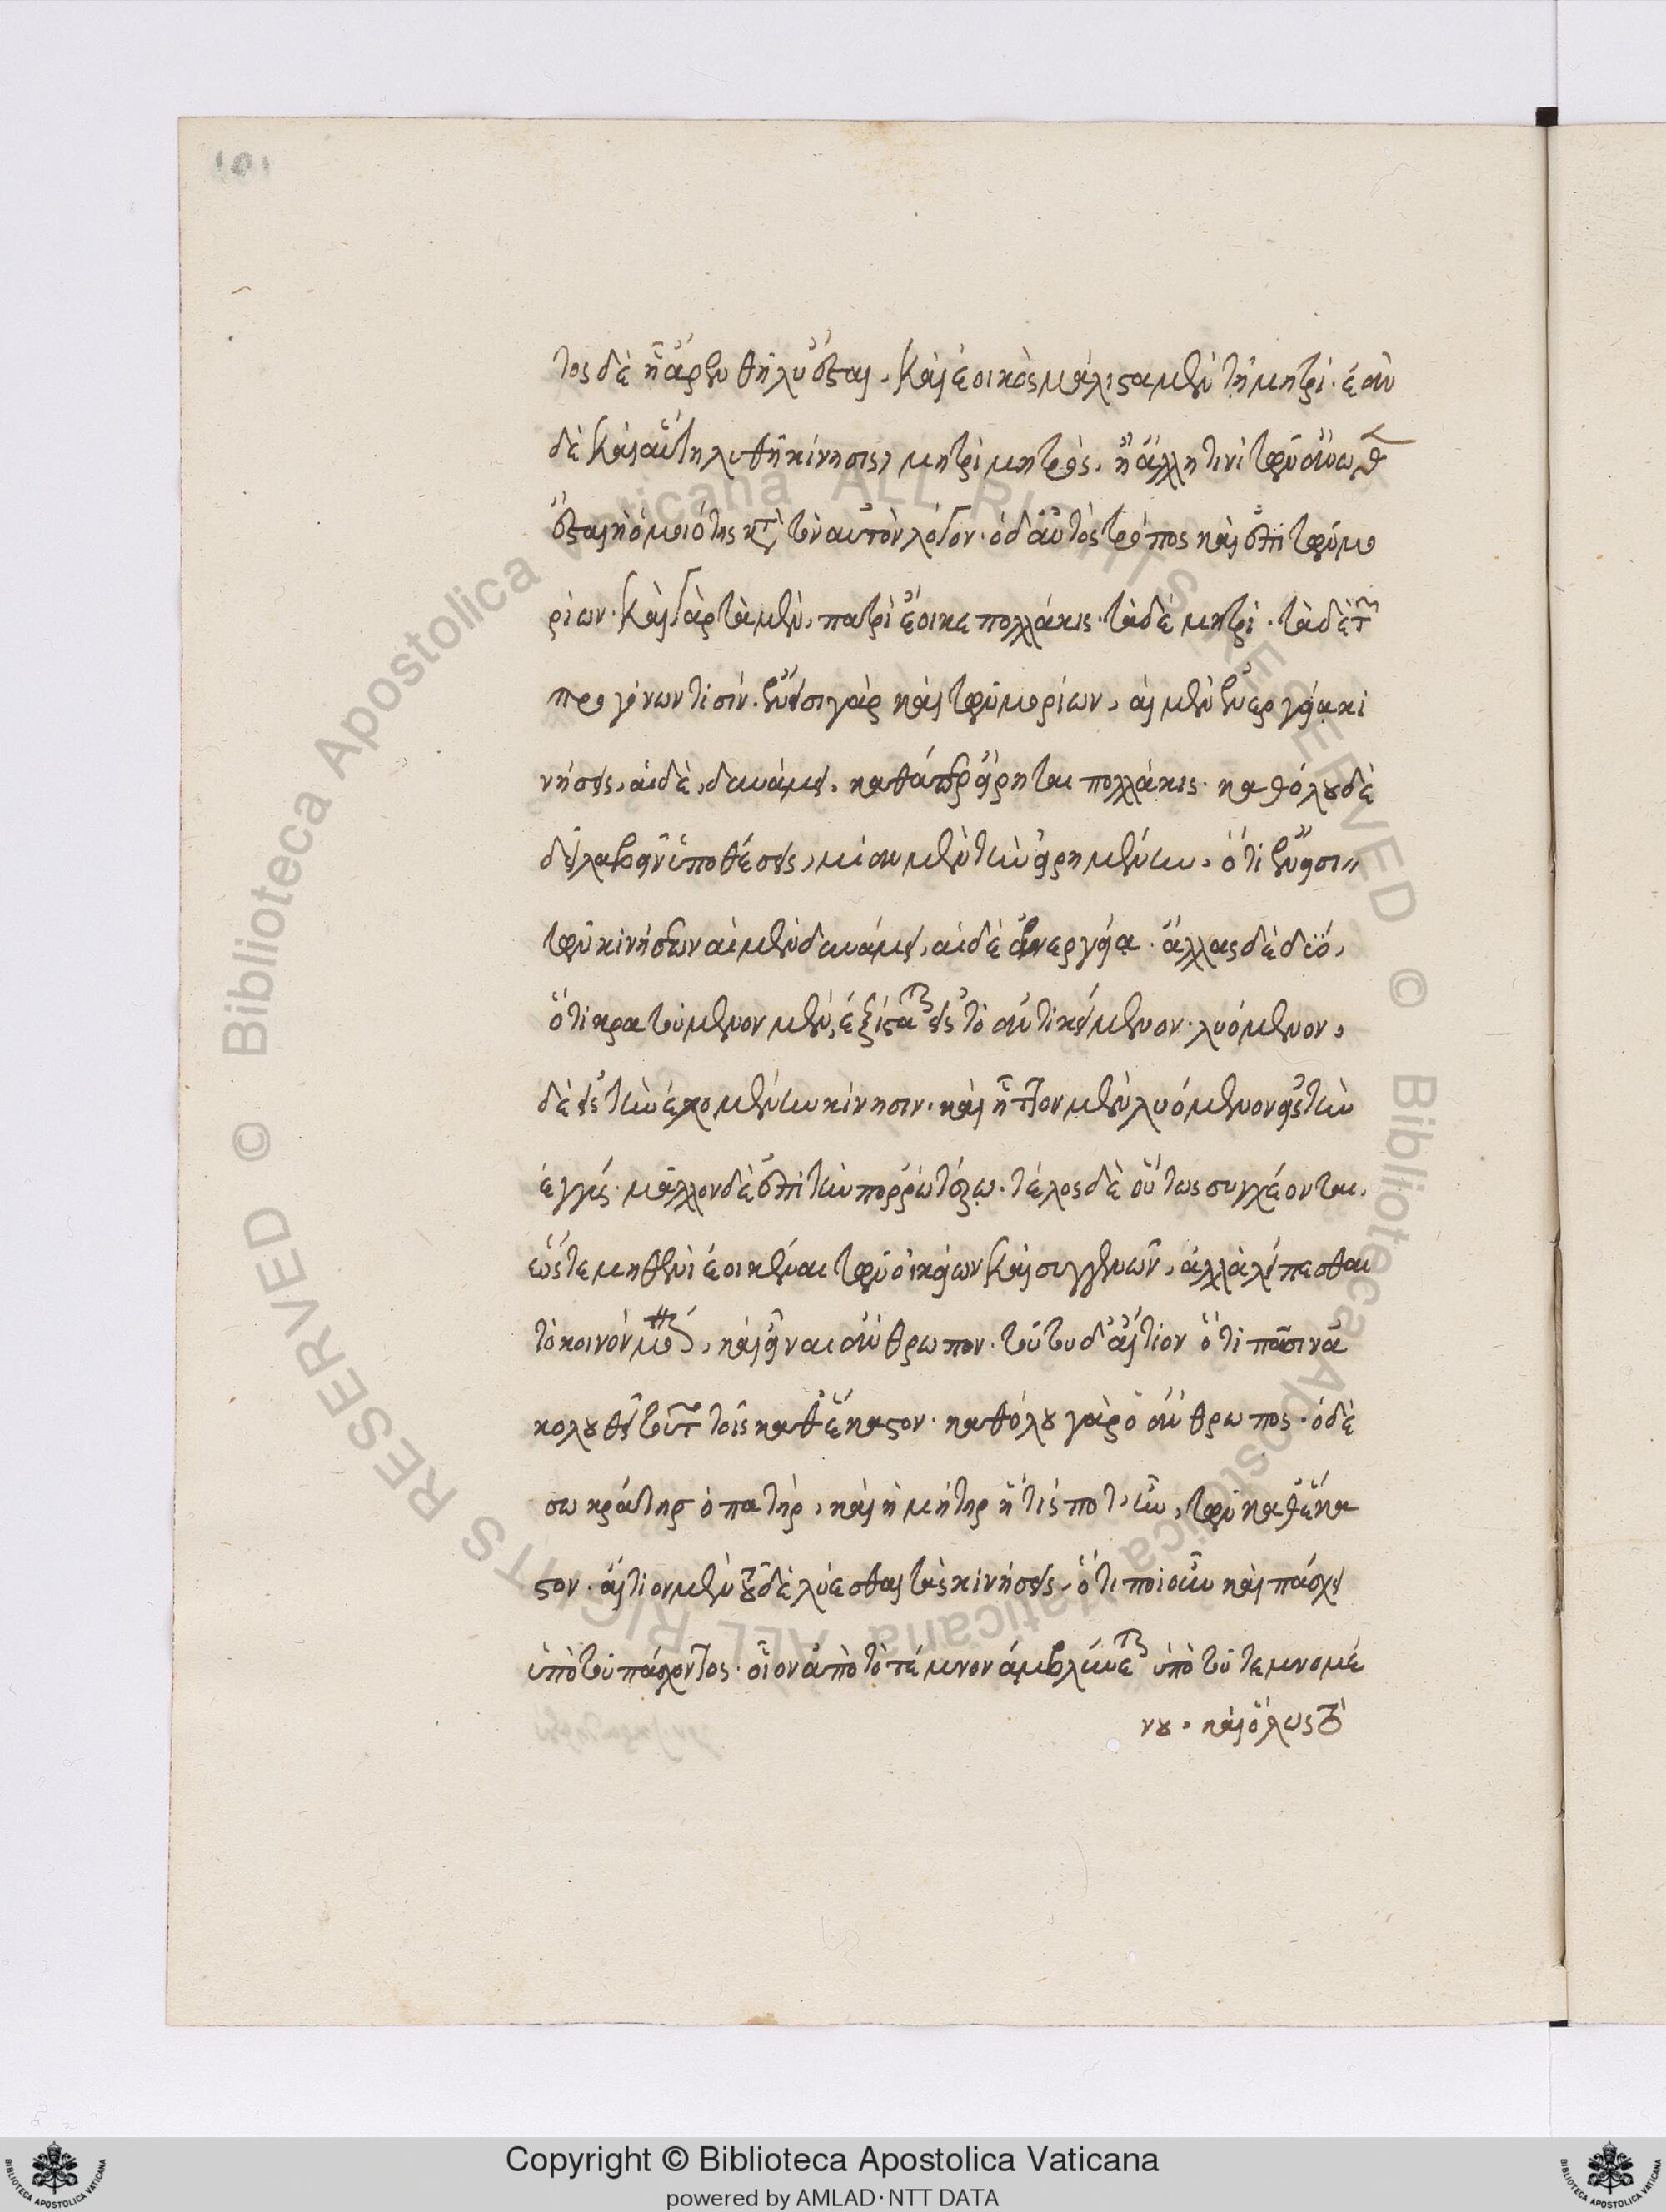 τος δὲ ἢ ἄρξεν θῆλυ ἔσται. καὶ ἐοικὸς μάλιστα μὲν τῇ μητρί. ἐὰν
δὲ καὶ αὕτη λυθῇ κίνησις, μητρὶ μητρὸς, ἢ ἄλλῃ τινὶ τῶν ἄνωθεν
ἔσται ἡ ὁμοιότης κατὰ τὸν αὐτὸν λόγον. ὁ δ' αὐτὸς τρόπος καὶ ἐπὶ τῶν μο
ρίων. καὶ γὰρ τὰ μὲν, πατρὶ ἔοικε πολλάκις. τὰ δὲ μητρί. τὰ δὲ τῶν
προγόνων τισίν. ἔνεισι γὰρ καὶ τῶν μορίων, αἱ μὲν ἐνεργείᾳ κι
νήσεις, αἱ δὲ, δυνάμει, καθάπερ εἴρηται πολλάκις. καθόλου δὲ
δεῖ λαβεῖν ὑποθέσεις, μίαν μὲν τὴν εἰρημένην, ὅτι ἔνεισι
τῶν κινήσεων αἱ μὲν δυνάμει, αἱ δὲ ἐνεργείᾳ. ἄλλας δὲ δύο,
ὅτι κρατούμενον μὲν, ἐξίσταται εἰς τὸ ἀντικείμενον. λυόμενον,
δὲ εἰς τὴν ἐχομένην κίνησιν. καὶ ἧττον μὲν λυόμενον εἰς τὴν
ἐγγύς. μᾶλλον δὲ ἐπὶ τὴν πορρωτέρω. τέλος δὲ οὕτως συγχέονται,
ὥστε μηθενὶ ἐοικέναι τῶν οἰκείων καὶ συγγενῶν, ἀλλὰ λείπεσθαι
τὸ κοινὸν μόνον, καὶ εἶναι ἄνθρωπον. τούτου δ' αἴτιον ὅτι πᾶσιν ἀ
κολουθεῖ τοῦτο τοῖς καθ' ἕκαστον. καθόλου γὰρ ὁ ἄνθρωπος. ὁ δὲ
σωκράτης ὁ πατὴρ, καὶ ἡ μήτηρ ἥτις ποτ' ἦν, τῶν καθ' ἕκα
στον. αἴτιον μὲν οὖν δὲ λύεσθαι τὰς κινήσεις, ὅτι ποιοῦν καὶ πάσχει
ὑπὸ τοῦ πάσχοντος. οἷον ἀπὸ τὸ τέμνον ἀμβλύνεται ὑπὸ τοῦ τεμνομέ
νου. καὶ ὅλως τὸ